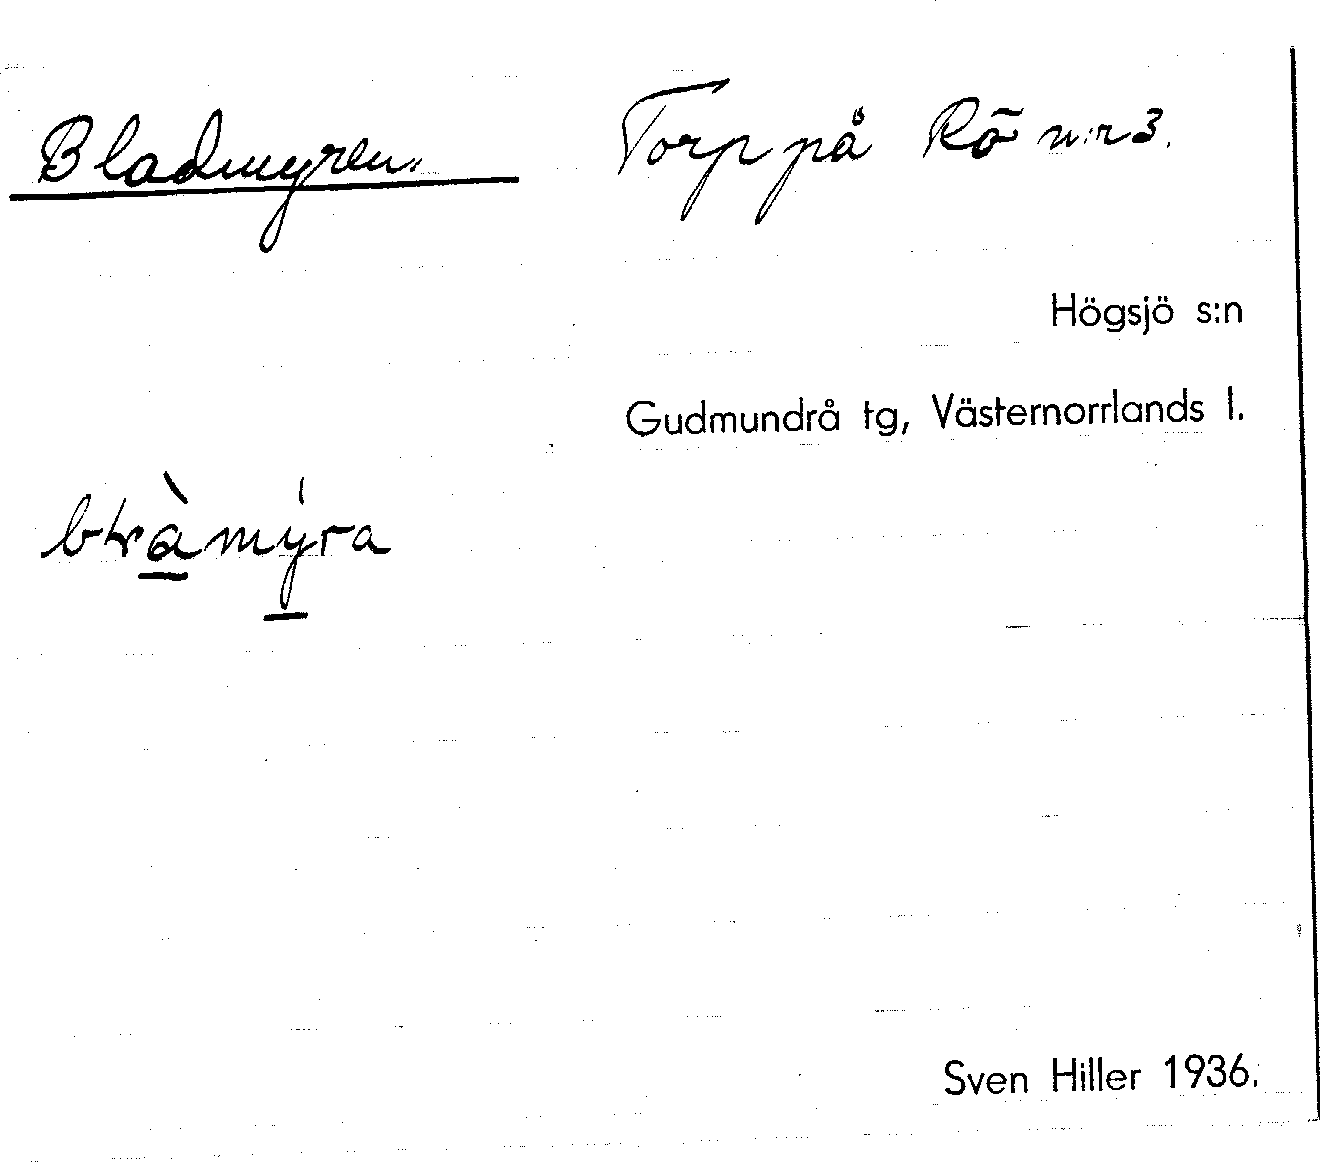 Bladmyren. Torp på Rö n:r 3.
Högsjö s:n
Gudmundrå tg, Västernorrlands l.
Sven Hiller 1936.